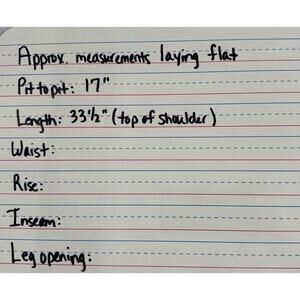 Approx. measurements laying flat
Pit to pit: 17"
Length: 33 1/2" (top of shoulder)
Waist:
Rise:
Inseam:
Leg opening: